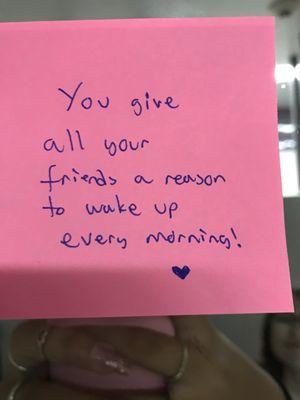 You give
all your
friends a reason
to wake up
every morning!